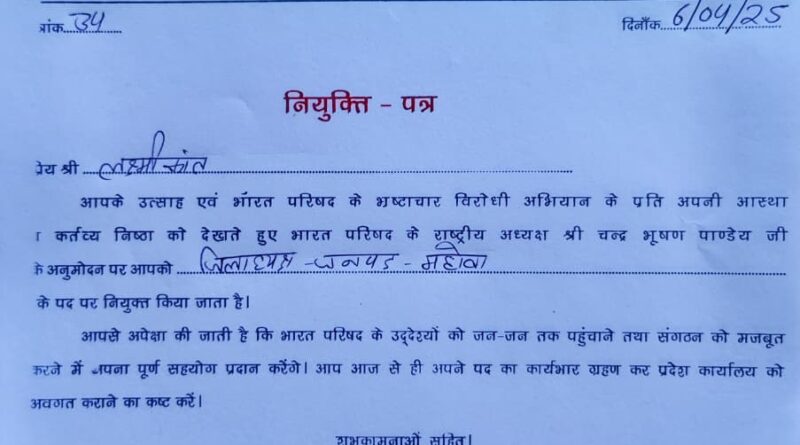 त्रांक 34 दिनाँक 6/04/25
नियुक्ति - पत्र
प्रेय श्री लक्ष्मीकांत
आपके उत्साह एवं भारत परिषद के भ्रष्टाचार विरोधी अभियान के प्रति अपनी आस्था
कर्तव्य निष्ठा को देखते हुए भारत परिषद के राष्ट्रीय अध्यक्ष श्री चन्द्र भूषण पाण्डेय जी
के अनुमोदन पर आपको जिलाध्यक्ष - जनपद - महोबा
के पद पर नियुक्त किया जाता है।
आपसे अपेक्षा की जाती है कि भारत परिषद के उद्देश्यों को जन-जन तक पहुंचाने तथा संगठन को मजबूत
करने में अपना पूर्ण सहयोग प्रदान करेंगे। आप आज से ही अपने पद का कार्यभार ग्रहण कर प्रदेश कार्यालय को
अवगत कराने का कष्ट करें।
शुभकामनाओं सहित।